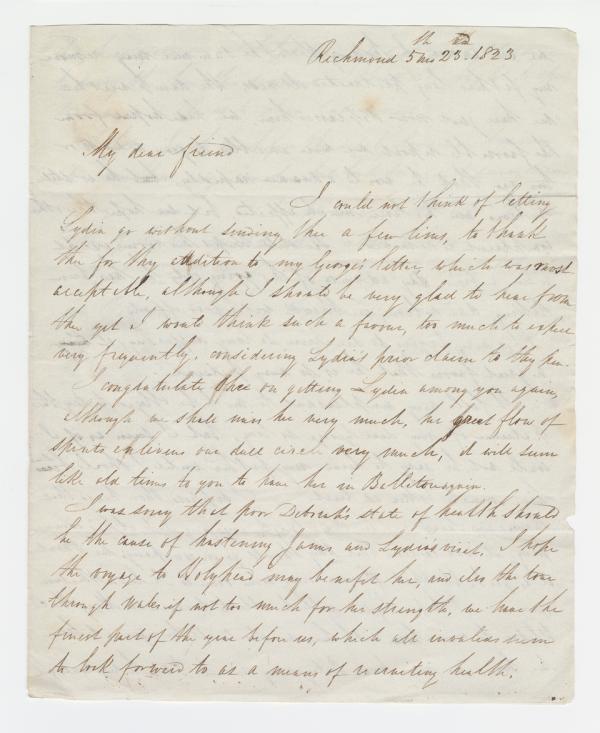 Richmond 5th mo 23rd 1823
My dear friend
I could not think of letting
Lydia go without sending thee a few lines, to thank
thee for thy addition to my George's letter, which was most
acceptable, although I should be very glad to hear from
thee yet I wont think such a favour, too much to expect
very frequently, considering Lydia's prior claim to thy pen.
I congratulate thee on getting Lydia among you again,
although we shall miss her very much, her great flow of
spirits enlivens our dull circle very much, it will seem
like old times to you to have her in Ballitore again.
I was sorry that poor Deborah's state of health should
be the cause of hastening James and Lydia's visit. I hope
the voyage to Holyhead may benefit her, and also the tour
through Wales if not too much for her strength, we have the
finest part of the year before us, which all invalids seem
to look forward to as a means of recruiting health.